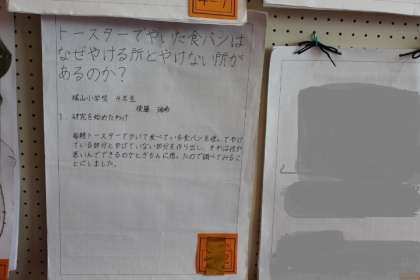 トースターでやいた食パンは
なぜやける所とやけない所が
あるのか?
小学校
1. 研究を始めたわけ
毎朝トースターでやいて食べている食パンを見てやけ
ている部分とやけていない部分を作り出し、それは何が
思いんでできるのかとぎもんに思ったので調べてみるこ
とにしました。